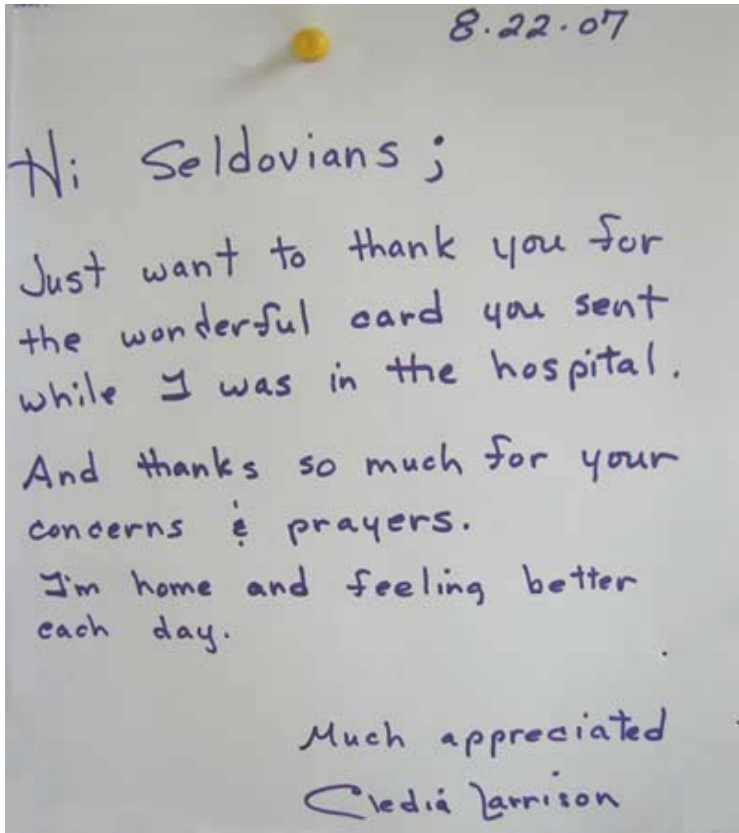 8.22.07
Hi Seldovians;
Just want to thank you for
the wonderful card you sent
while I was in the hospital.
And thanks so much for your
concerns & prayers.
I'm home and feeling better
each day.
Much appreciated
Cledia Larrison